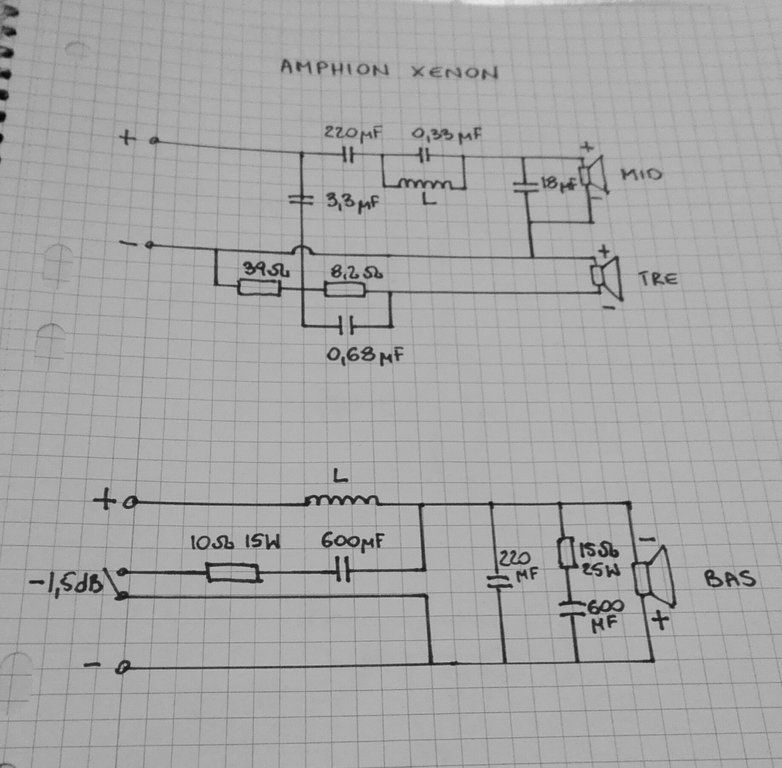 AMPHION XENON
+
220µF
0,33µF
+
MID
3,3µF
L
18µF
-
-
+
39Ω
8,2Ω
TRE
-
0,68µF
L
+
10Ω 15W
600µF
-
-1,5dB
220
µF
15Ω
25W
BAS
600
µF
+
-